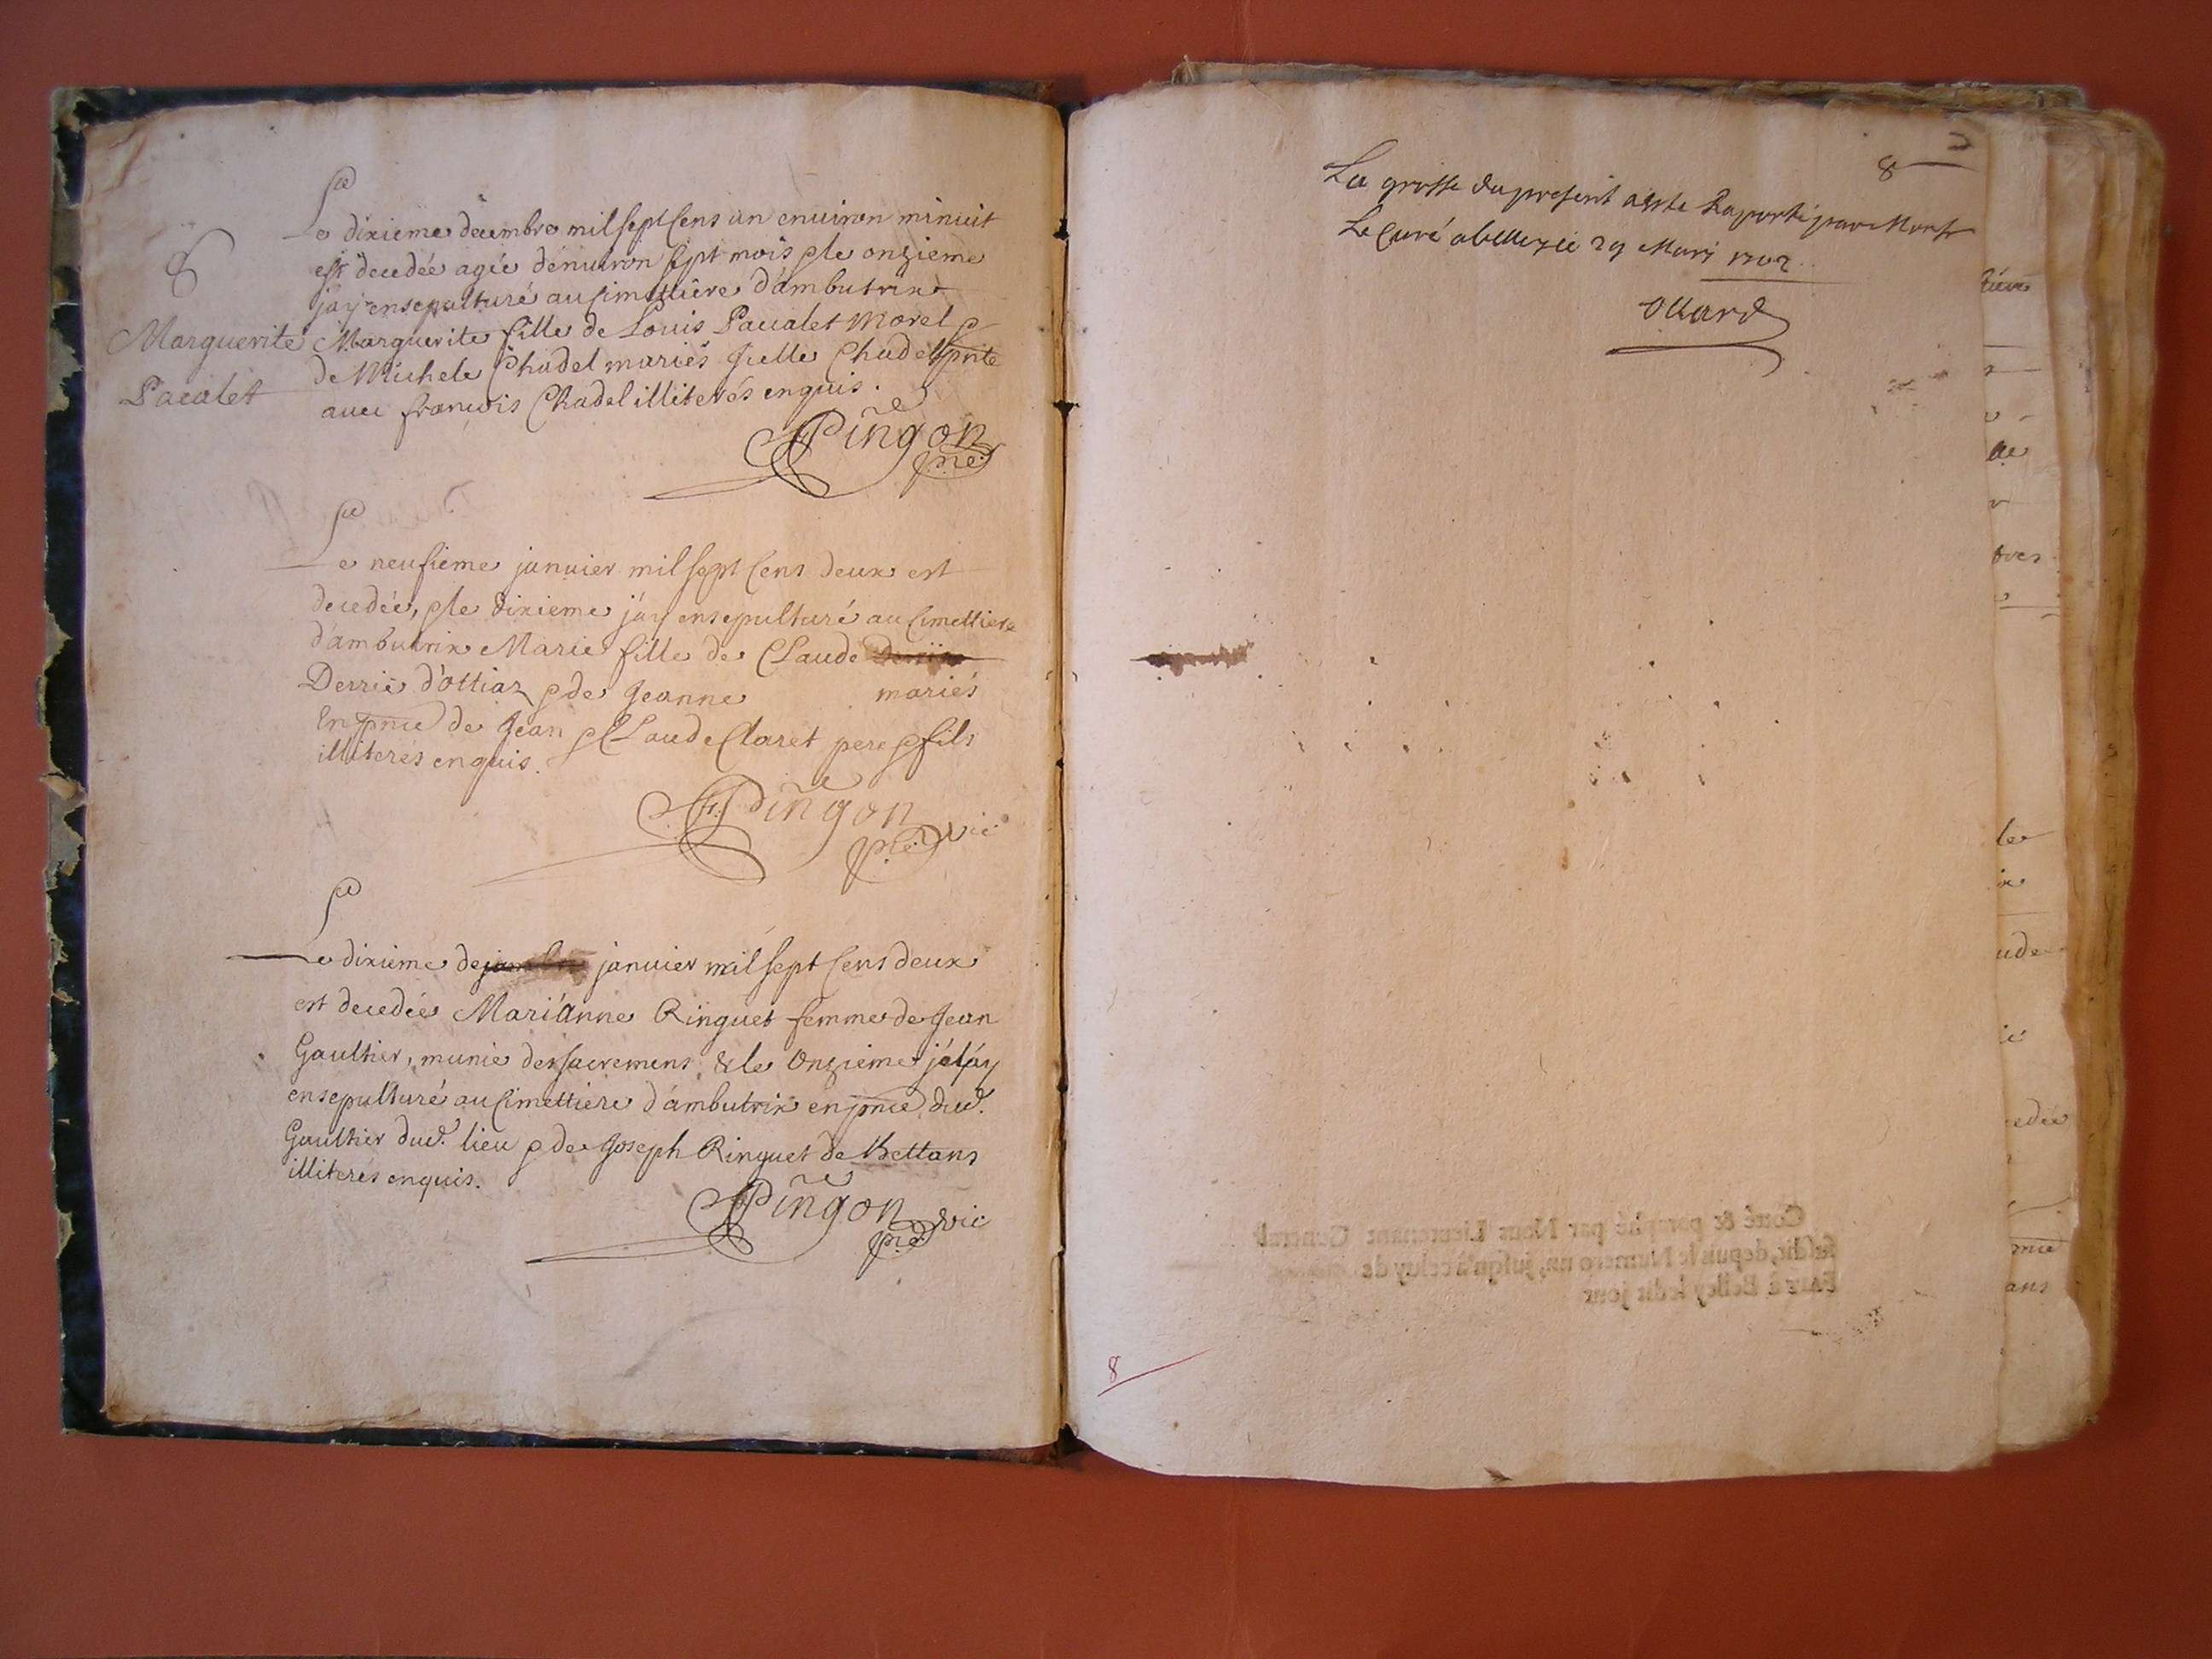 8
Marguerite
Pacalet
Le dixieme decembre mil sept Cens un enuiron minuit
est decedée agée d'enuiron sept mois et le onzieme
j'ay ensepulturé au simettiere d'ambutrix
Marguerite fille de Louis Pacalet Morel et
de Michele Chadel mariés icelle Chadel pnte
auec francois Chadel illiterés enquis.
Pingon
pre
Le neufieme januier mil sept Cens deux est
decedée, et le dixieme j'ay ensepulturé au Cimettiere
d'ambutrix Marie fille de Claude
Derrie d'ottiaz et de Jeanne mariés
En pnce de Jean et Claude Claret pere et fils
illiterés enquis.
Pingon
pre vic
Le dixieme de januier mil sept Cens deux
est decedée Marianne Ringuet femme de Jean
Gaultier, munie des sacremens, & le Onzieme je l'ay
ensepulturé au Cimettiere d'ambutrix en pnce dud.
Gaultier dud. lieu et de Joseph Ringuet de Bettans
illiterés enquis.
Pingon
pre vic
8
La grosse du present acte Raporté par Monsr
Le Curé a belley ce 29 Mars 1702
Ottard
Cotté & paraphé par Nous Lieutenant General
susdit, depuis le Numero un, jusqu'à celuy de
Fait à Belley ledit jour
8
tres
les
ude
edée
pnce
ans